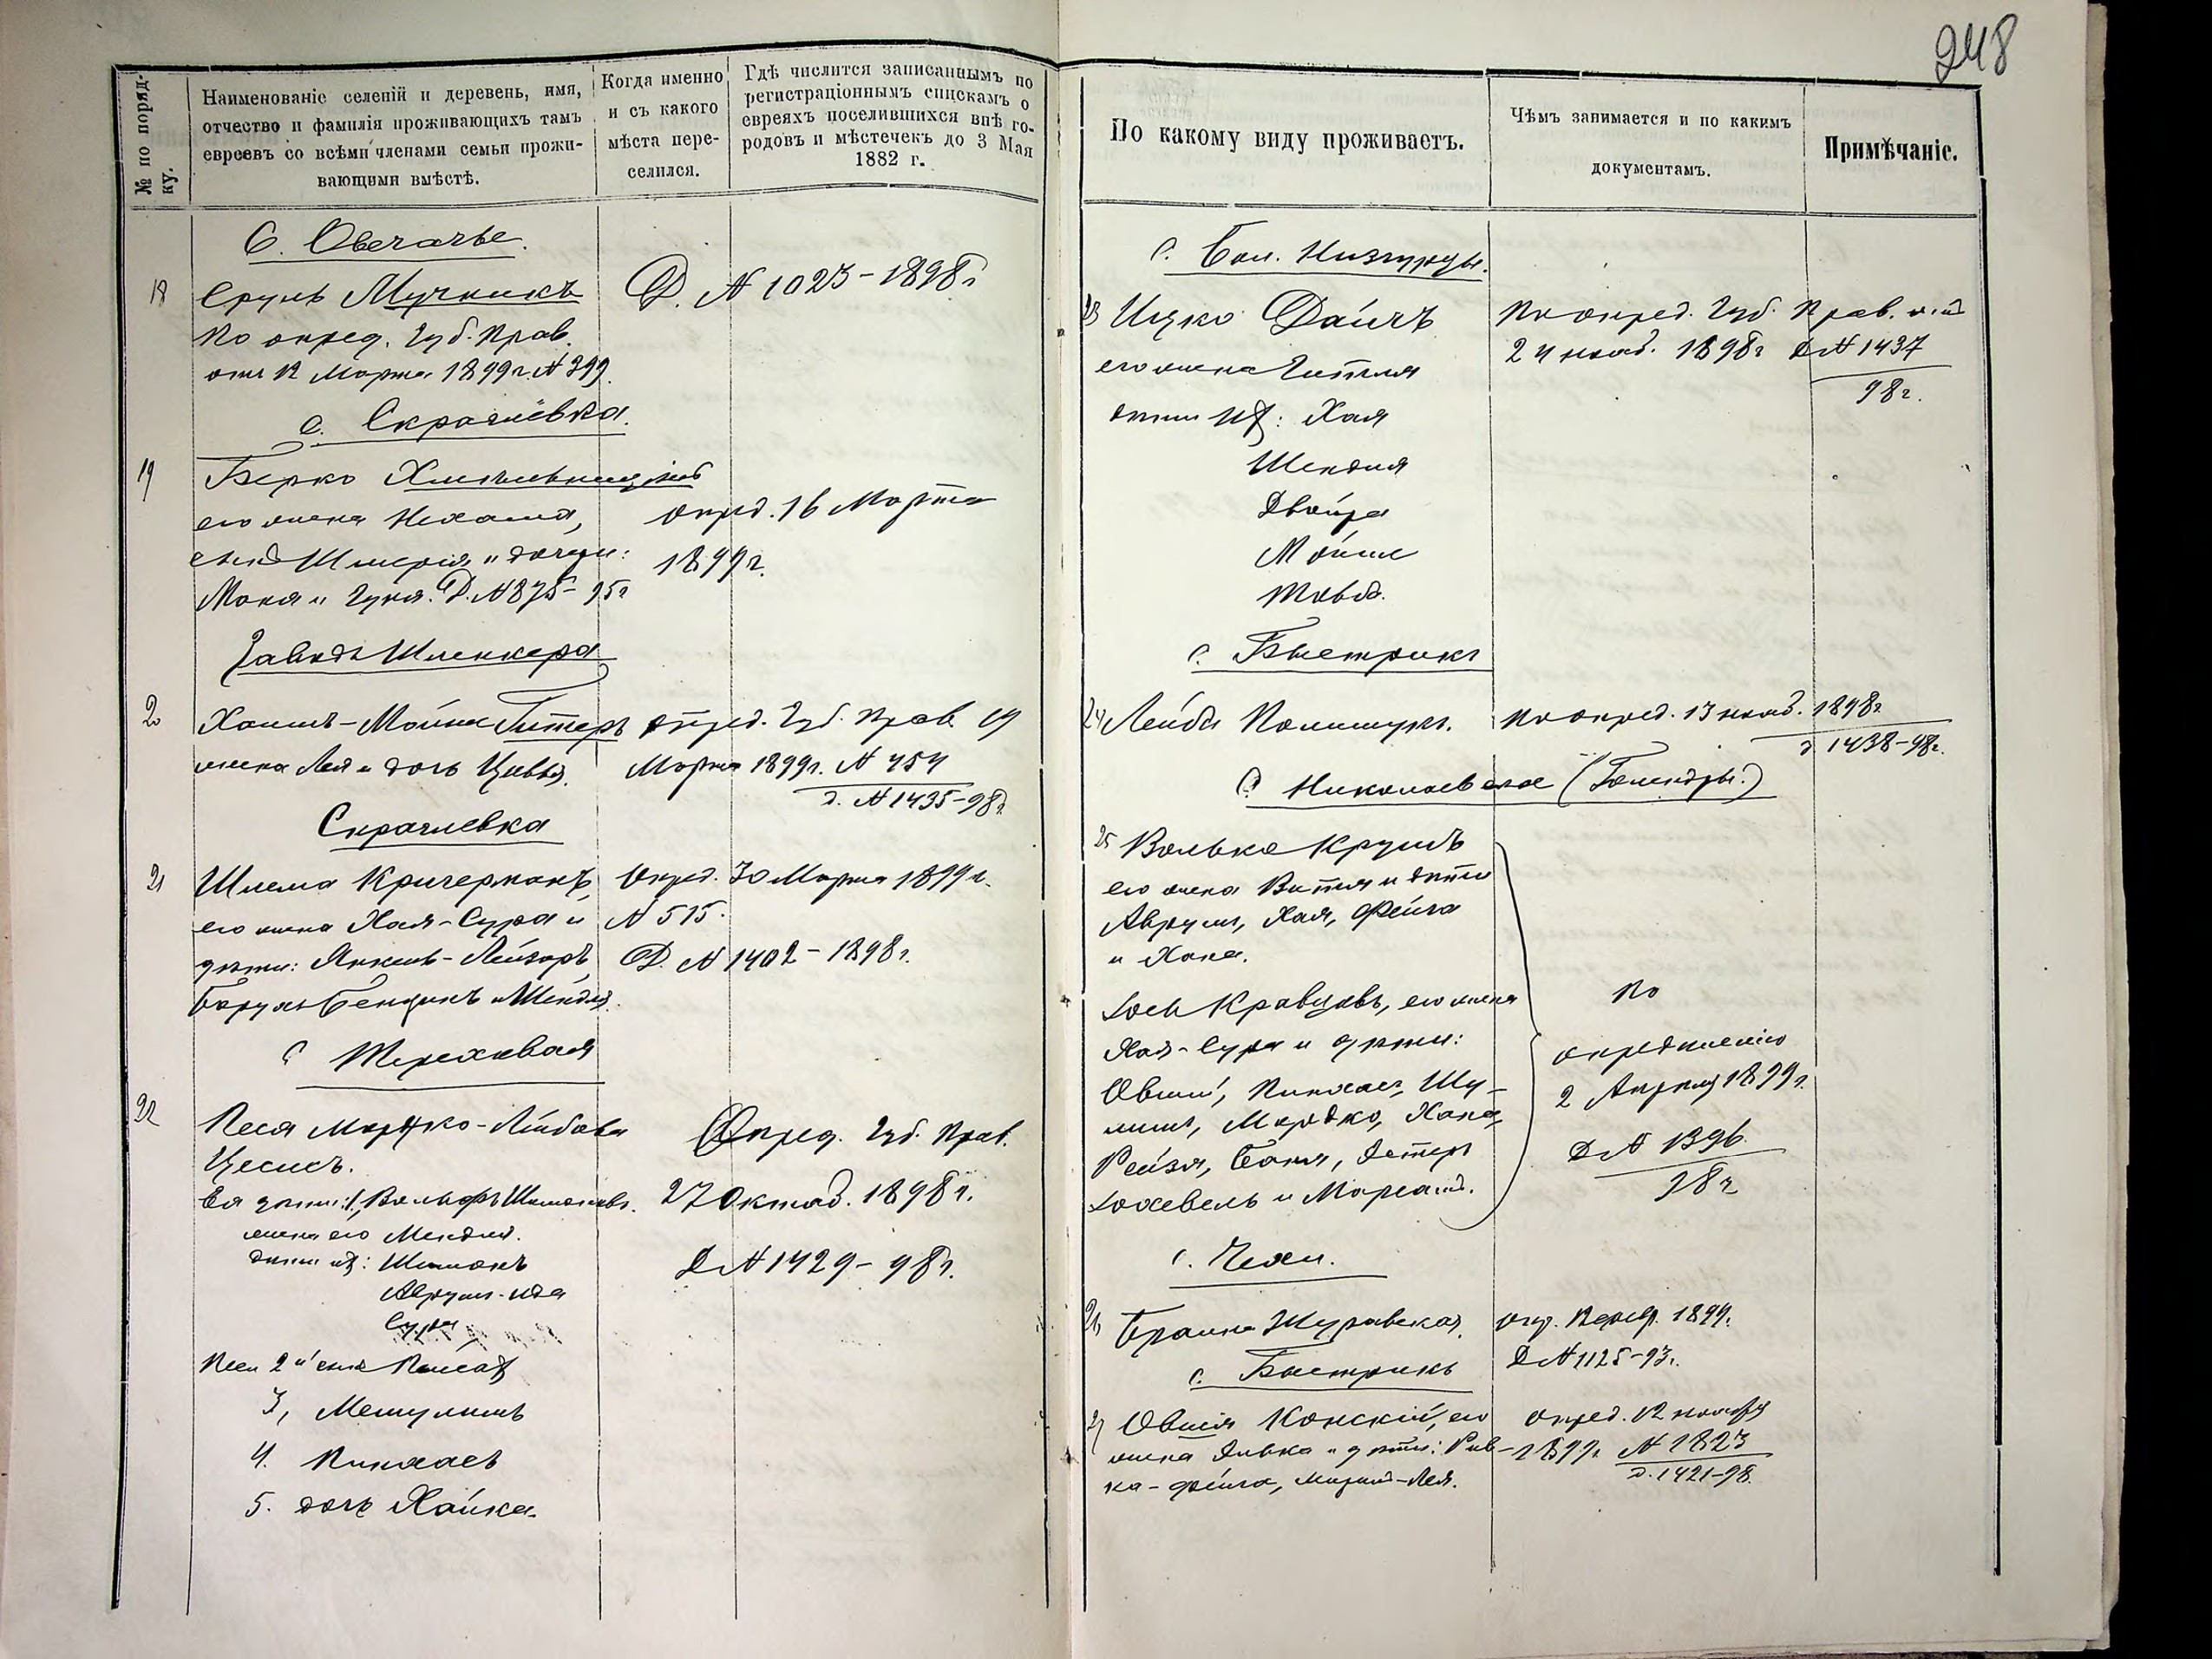 248
№ по поряд-
ку.
Наименованіе селеній и деревень, имя,
отчество и фамилія проживающихъ тамъ
евреевъ со всѣми членами семьи прожи-
вающими вмѣстѣ.
Когда именно
и съ какого
мѣста пере-
селился.
Гдѣ числится записаннымъ по
регистраціоннымъ спискамъ о
евреяхъ поселившихся внѣ го-
родовъ и мѣстечекъ до 3 Мая
1882 г.
С. Овечачье.
18 Срулъ Мучникъ Д. № 1023-1898 г
По опред. Губ. Прав.
отъ 12 Марта 1899 г. № 399.
с. Скраглёвка.
19 Берко Хмельницкій
его жена Нехама, опред. 16 Марта
сынъ Шмерія и дочери: 1899 г.
Маня и Гуня. Д. № 875-95 г
Заводъ Шленкера
20 Хаимъ-Мойше Гитеръ опред. Губ. Прав. 19
жена Лея и дочь Цивья. Марта 1899 г. № 454
д. № 1435-98 г.
Скраглевка
21 Шлема Кричерманъ, Опред. 30 Марта 1899 г.
его жена Хая-Сура и № 515.
дѣти: Янкель-Лейзоръ, Д. № 1402-1898 г.
Борухъ Бенціонъ и Шендля.
с Терехова
22 Песя Мордко-Лейбова Опред. Губ. Прав.
Цесисъ.
Ея дѣти: 1, Вольфъ Шимоновъ. 27 Октяб. 1898 г.
жена его Мендля.
дѣти ихъ: Шимонъ Д № 1429-98 г.
Аврумъ-Ида
Сура
Песи 2й сынъ Пейсахъ
3, Мешулимъ
4. Пинхасъ
5. дочь Хайка.
По какому виду проживаетъ.
Чѣмъ занимается и по какимъ
документамъ.
Примѣчаніе.
с. Бол. Низгурцы.
23 Ицко Даичъ По опред. Губ. Прав. отъ
его жена Гитля 24 нояб. 1898 г Д № 1437
98 г.
дѣти ихъ: Хая
Шендля
Двойра
Мойше
Товба.
с. Быстрикъ
24 Лейба Полищукъ. По опред. 13 нояб. 1898 г
д 1438-98 г.
с Николаевка (Голендры.)
25 Волько Крушъ
его жена Витля и дѣти
Аврумъ, Хая, Фейга
и Хана.
Іось Кравцовъ, его жена По
Хая-Сура и дѣти: опредѣленію
Овшій, Пинхасъ, Шу- 2 Апрѣля 1899 г.
лимъ, Мордко, Хана,
Рейзя, Баня, Эстеръ Д № 1396
Іохевель и Маріамъ. 98 г
с. Чехи.
26 Браина Журавская. 1899.
с. Быстрикъ Д № 1125-93 г.
27 Овшія Конскій, его опред. 12 ноября
жена Зивка и дѣти: Рив- 1899 г. № 1823
ка-Фейга, Миріамъ-Лея. д. 1421-98.